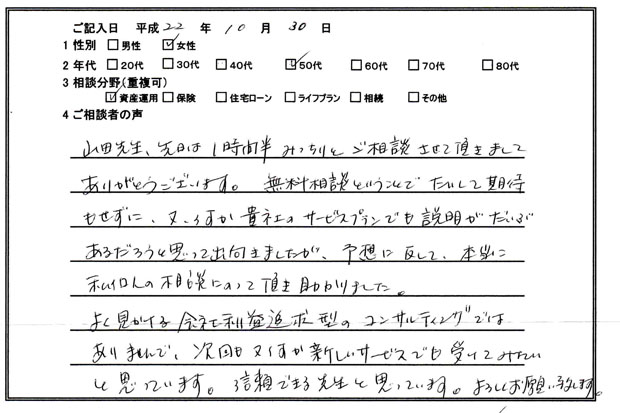 ご記入日 平成22年10月30日
1 性別 □男性 ☑女性
2 年代 □20代 □30代 □40代 ☑50代 □60代 □70代 □80代
3 相談分野(重複可)
☑資産運用 □保険 □住宅ローン □ライフプラン □相続 □その他
4 ご相談者の声
山田先生、先日は1時間半みっちりとご相談させて頂きまして
ありがとうございます。無料相談ということでたいして期待
もせずに、又、貴社のサービスプランでも説明がだいぶ
あるだろうと思って出向きましたが、予想に反して、本当に
私個人の相談にのって頂き助かりました。
よく見かける会社利益追求型のコンサルティングでは
ありませんで、次回も新しいサービスでも受けてみたい
と思っています。信頼できる先生と思っています。よろしくお願い致します。